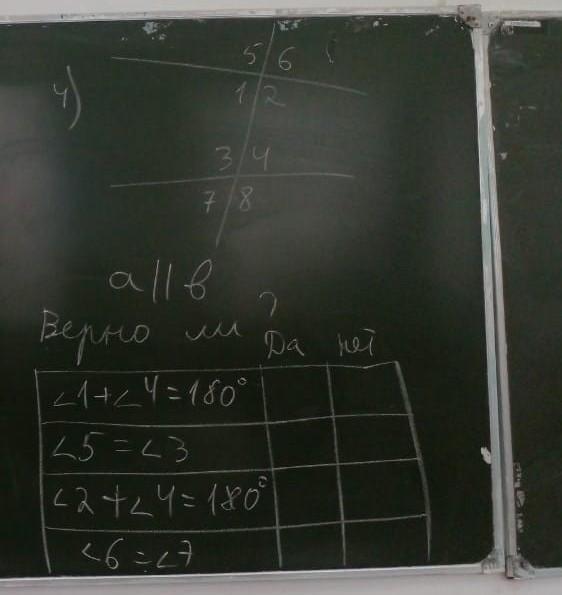 4)
5 6
1 2
3 4
7 8
a || в
Верно ли ?
Да нет
∠1+∠4=180°
∠5=∠3
∠2+∠4=180°
∠6=∠7